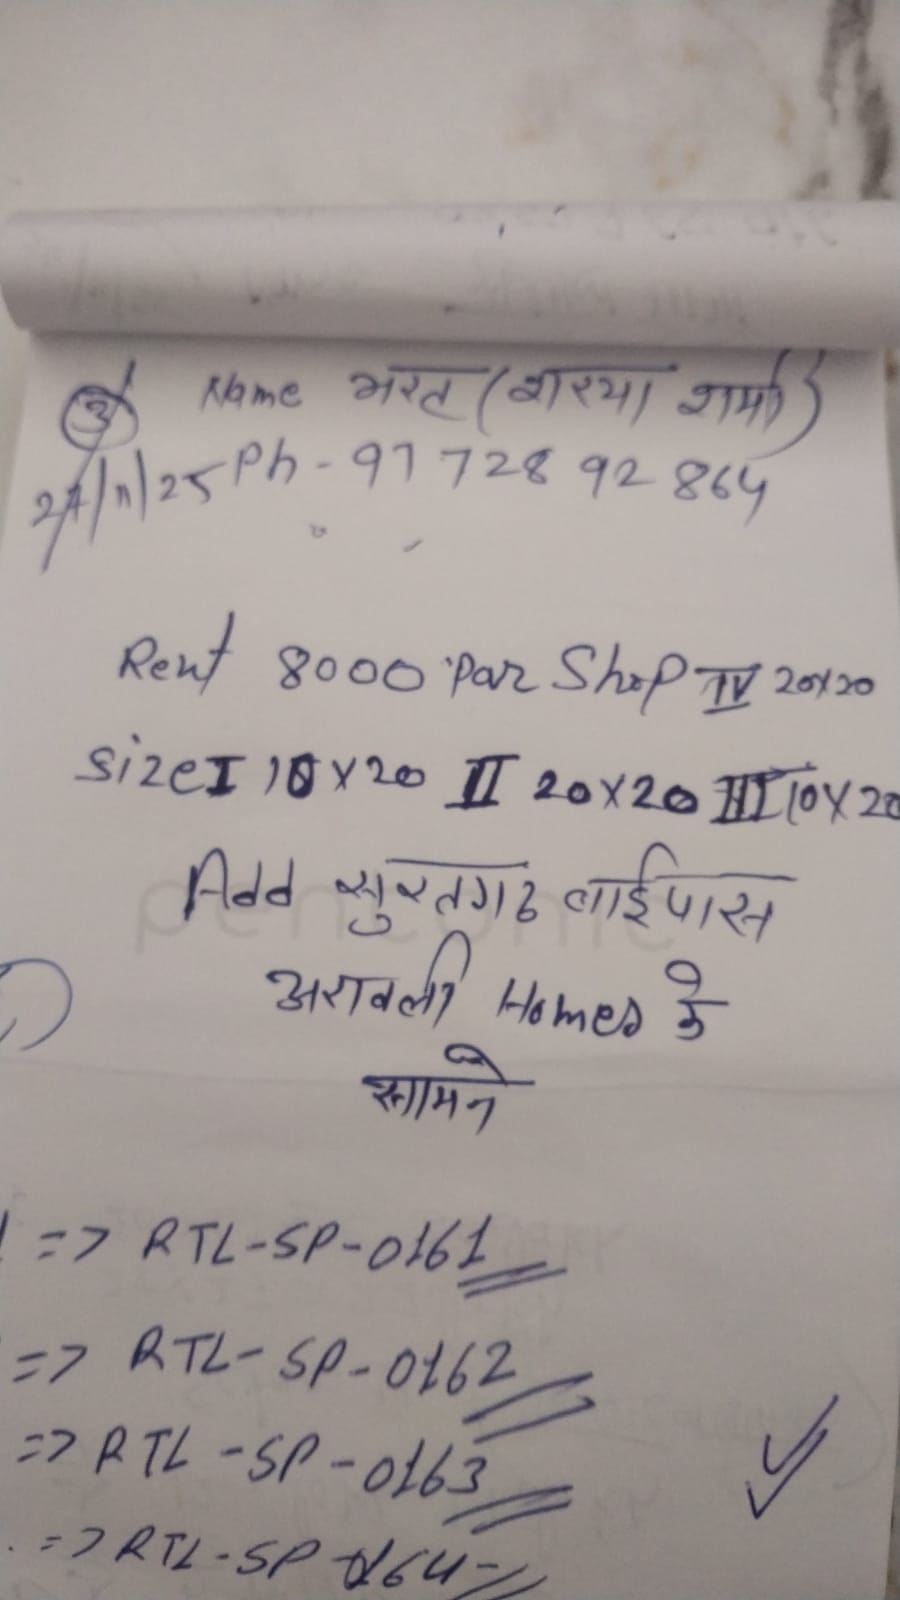 3 Name भरत (शरया शर्मा)
27/11/25 Ph - 97728 92864
Rent 8000 Par Shop IV 20x20
size I 10 x 20 II 20 x 20 III 10 x 20
Add सुरतगढ बाईपास
अरावली Homes के
सामने
=> RTL-SP-0161
=> RTL-SP-0162
=> RTL-SP-0163
=> RTL-SP 0164